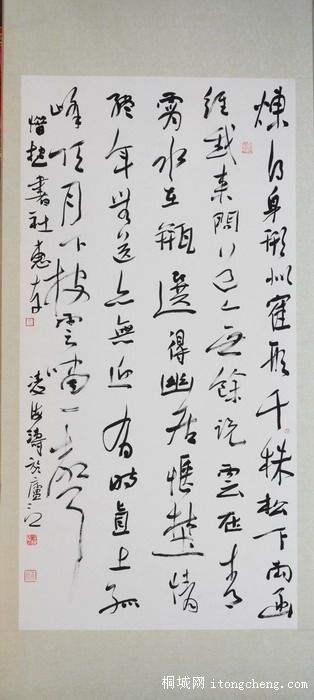 煉得身形似鶴形千株松下兩函
經我來問道無餘説雲在青
霄水在瓶選得幽居愜埜情
終年無送亦無迎有時直上孤
峰頂月下披雲嘯一聲
惜抱書社惠存 凌海濤於廬江
桐城网 itongcheng.com